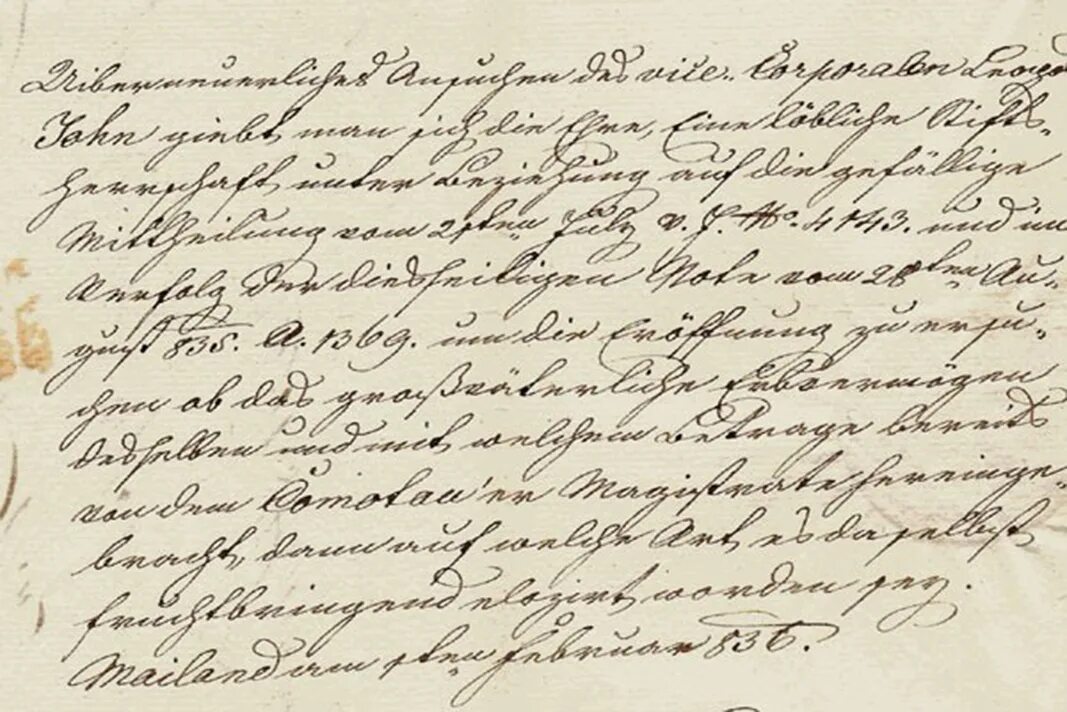 Uiber neuerliches Ansuchen des vice-Corporalen Leopo
John giebt man sich die Ehre, Eine löbliche Stifts-
herrschaft unter Beziehung auf die gefällige
Mittheilung vom 29ten July v. J. No. 4143. und im
Verfolg der diesseitigen Note vom 28ten Au-
gust 835. A. 1369. um die Eröffnung zu ersu-
chen ob das großväterliche Erbvermögen
desselben und mit welchem Betrage bereits
von dem Comotau'er Magistrate hereinge-
bracht, dann auf welche Art es daselbst
fruchtbringend elozirt worden sey.
Mailand am 1ten Februar 836.